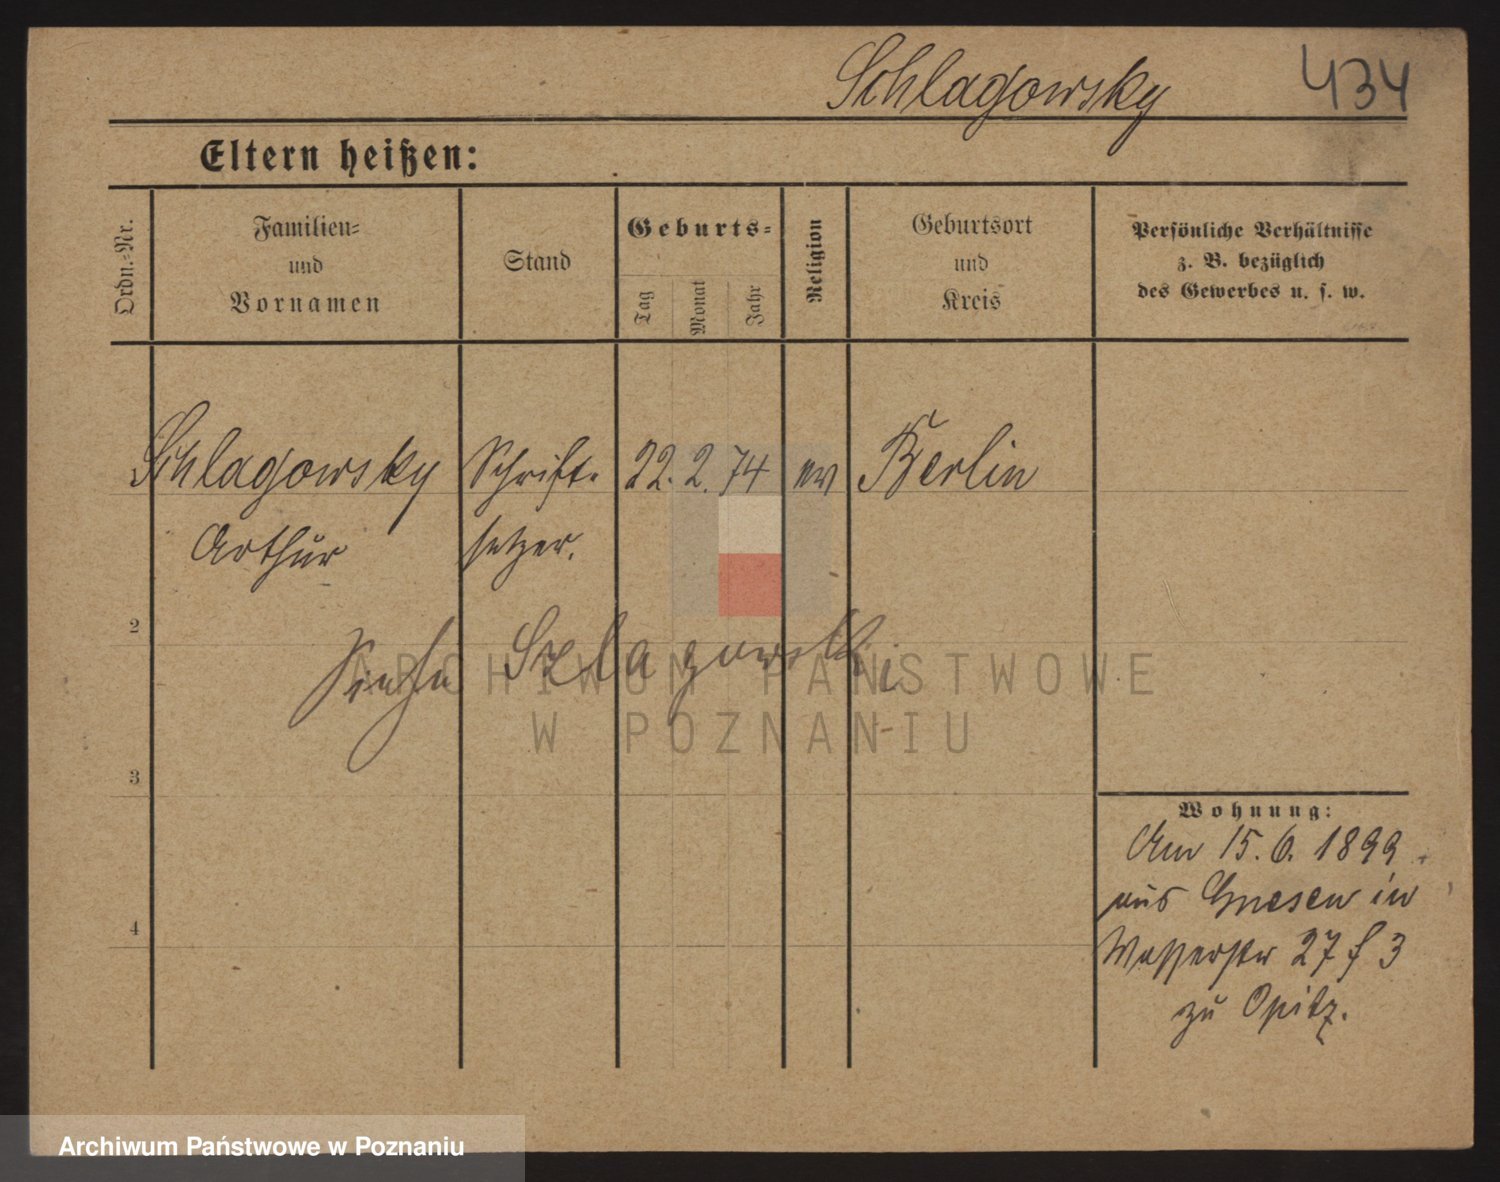 Schlagowsky 434
Eltern heißen:
Ordn.-Nr.
Familien-
und
Vornamen
Stand
Geburts-
Tag
Monat
Jahr
Religion
Geburtsort
und
Kreis
Persönliche Verhältnisse
z. B. bezüglich
des Gewerbes u. s. w.
Schlagowsky Schrift- 22. 2. 74 ev Berlin
Arthur setzer.
2
Siehe Szlagowski
3
4
Wohnung:
Am 15. 6. 1899
aus Gnesen in
Wasserstr 27 f 3
zu Opitz.
ARCHIWUM PAŃSTWOWE
W POZNANIU
Archiwum Państwowe w Poznaniu